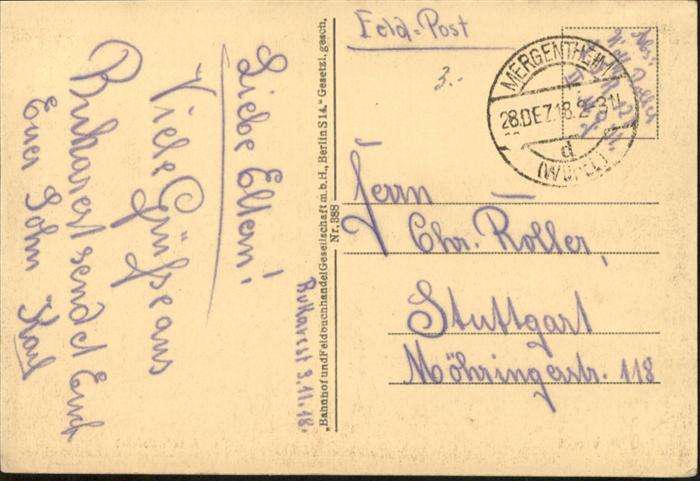 Feld-Post
3.-
MERGENTHEIM
28.DEZ.18.2-3N
d
(WÜRTT.)
Bukarest 3.11.18.
Liebe Eltern!
Viele Grüße aus
Bukarest sendet Euch
Euer Sohn Karl
"Bahnhof und Feldbuchhandel Gesellschaft m.b.H., Berlin S 14." Gesetzl. gesch.
Nr. 388
Herrn
Chr. Roller,
Stuttgart
Möhringerstr. 118